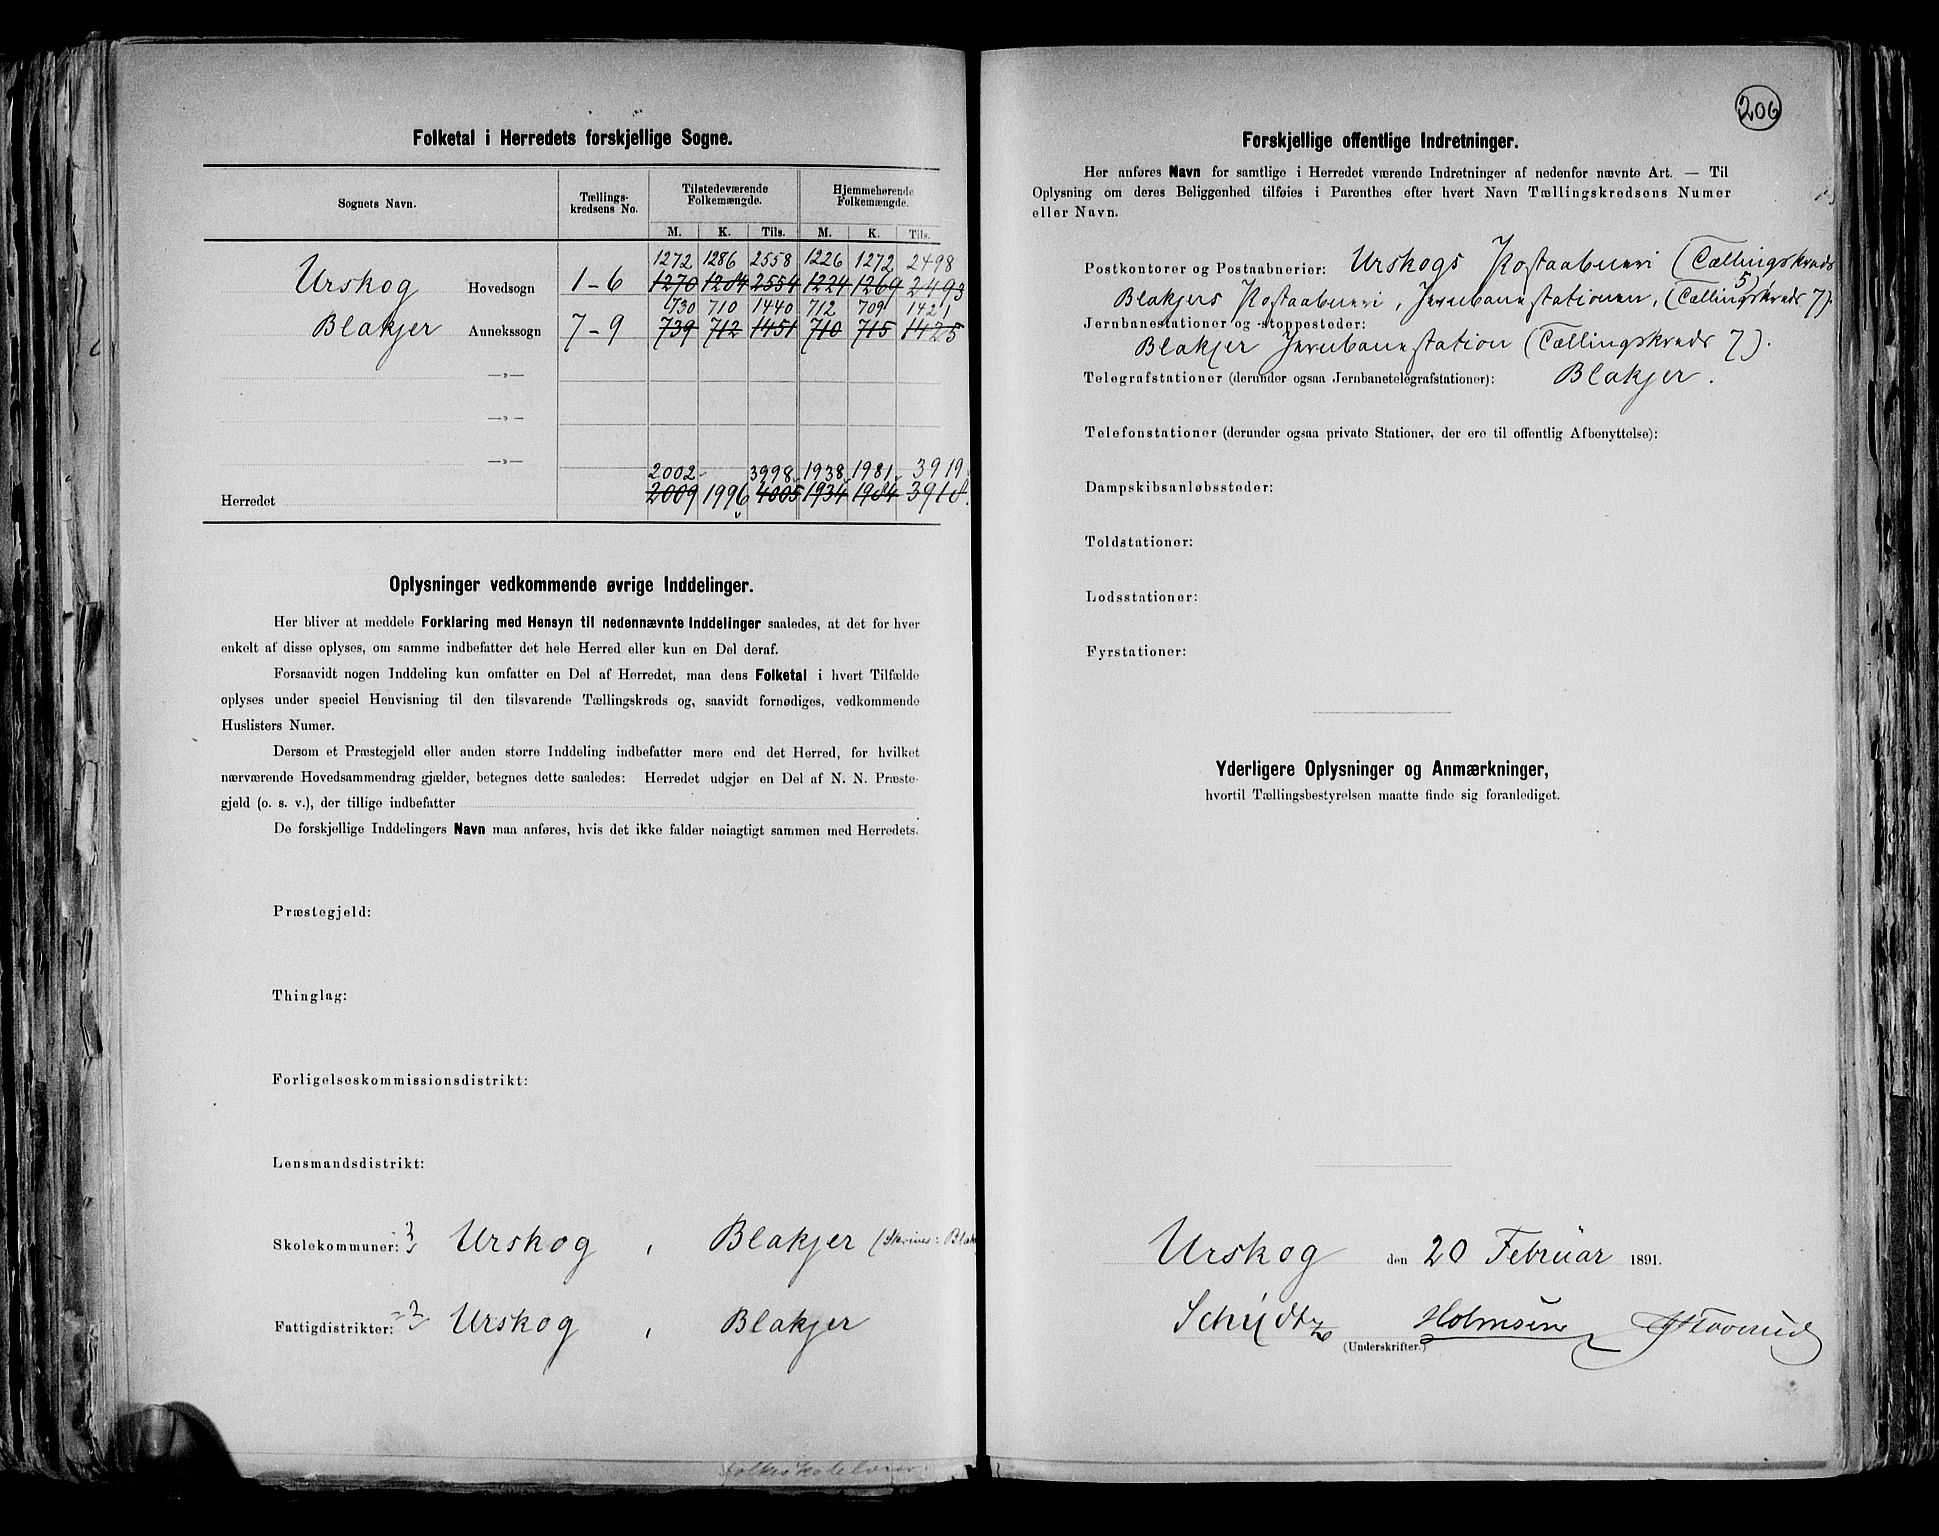 Folketal i Herredets forskjellige Sogne.
Sognets Navn.
Tællings-
kredsens No.
Tilstedeværende
Folkemængde.
Hjemmehørende
Folkemængde.
M. K. Tils. M. K. Tils.
1272 1286 2558 1226 1272 2498
Urskog Hovedsogn 1-6 1270 1284 2554 1224 1269 2493
730 710 1440 712 709 1421
Blakjer Annekssogn 7-9 739 712 1451 710 715 1425
—„—
—„—
—„—
2002 3998 1938 1981 3919
Herredet 2009 1996 4005 1934 1984 3918
Oplysninger vedkommende øvrige Inddelinger.
Her bliver at meddele Forklaring med Hensyn til nedennævnte Inddelinger saaledes, at det for hver
enkelt af disse oplyses, om samme indbefatter det hele Herred eller kun en Del deraf.
Forsaavidt nogen Inddeling kun omfatter en Del af Herredet, maa dens Folketal i hvert Tilfælde
oplyses under speciel Henvisning til den tilsvarende Tællingskreds og, saavidt fornødiges, vedkommende
Huslisters Numer.
Dersom et Præstegjeld eller anden større Inddeling indbefatter mere end det Herred, for hvilket
nærværende Hovedsammendrag gjælder, betegnes dette saaledes: Herredet udgjør en Del af N. N. Præste-
gjeld (o. s. v.), der tillige indbefatter
De forskjellige Inddelingers Navn maa anføres, hvis det ikke falder nøiagtigt sammen med Herredets.
Præstegjeld:
Thinglag:
Forligelseskommissionsdistrikt:
Lensmandsdistrikt:
Skolekommuner: Urskog, Blakjer (Skrives: Blak
Fattigdistrikter: Urskog, Blakjer
206
Forskjellige offentlige Indretninger.
Her anføres Navn for samtlige i Herredet værende Indretninger af nedenfor nævnte Art. — Til
Oplysning om deres Beliggenhed tilføies i Parenthes efter hvert Navn Tællingskredsens Numer
eller Navn.
Postkontorer og Postaabnerier: Urskogs Postaabneri (Tællingskreds
5)
Blakjers Postaabneri, Jernbanestationen, (Tællingskreds 7).
Jernbanestationer og -stoppesteder:
Blakjer Jernbanestation (Tællingskreds 7).
Telegrafstationer (derunder ogsaa Jernbanetelegrafstationer): Blakjer.
Telefonstationer (derunder ogsaa private Stationer, der ere til offentlig Afbenyttelse):
Dampskibsanløbssteder:
Toldstationer:
Lodsstationer:
Fyrstationer:
Yderligere Oplysninger og Anmærkninger,
hvortil Tællingsbestyrelsen maatte finde sig foranlediget.
Urskog den 20 Februar 1891.
Holmsen
(Underskrifter.)